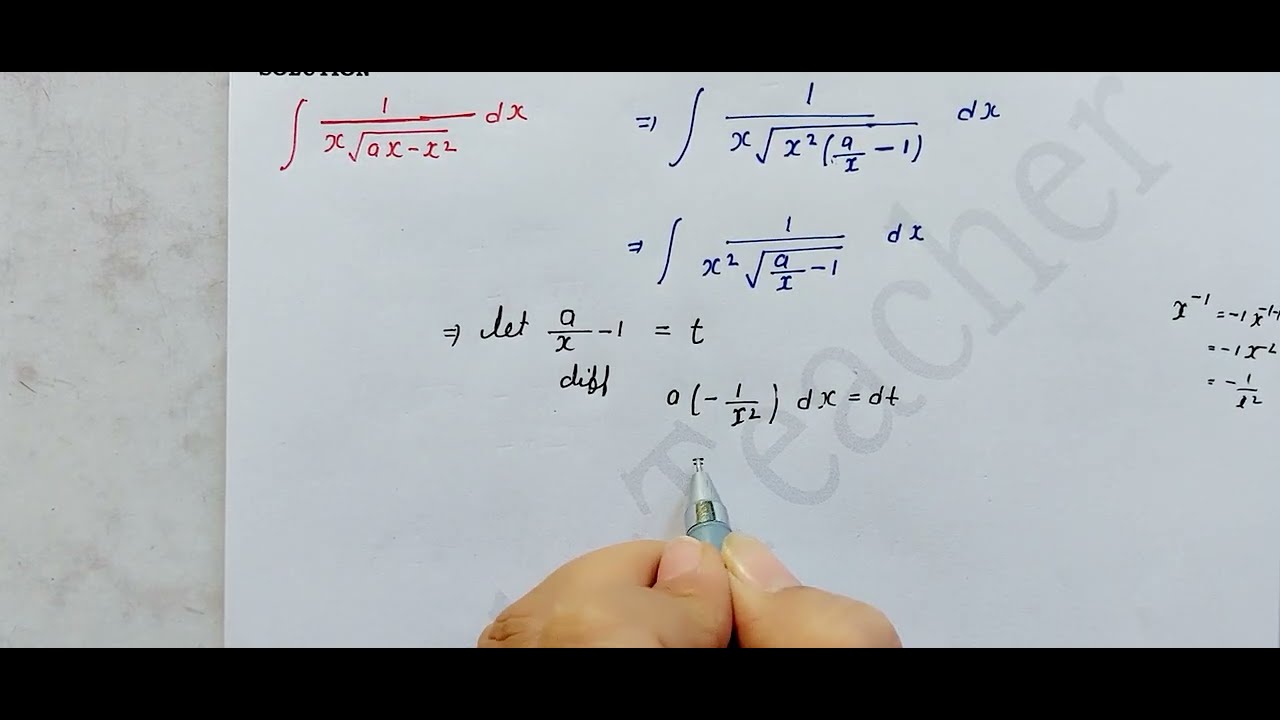 SOLUTION
∫ 1/(x√(ax-x²)) dx ⇒ ∫ 1/(x√(x²(a/x - 1))) dx
⇒ ∫ 1/(x²√(a/x - 1)) dx
⇒ let a/x - 1 = t
diff a(-1/x²) dx = dt
=
x⁻¹ = -1x⁻¹⁻
= -1x⁻²
= -1/x²
Teacher